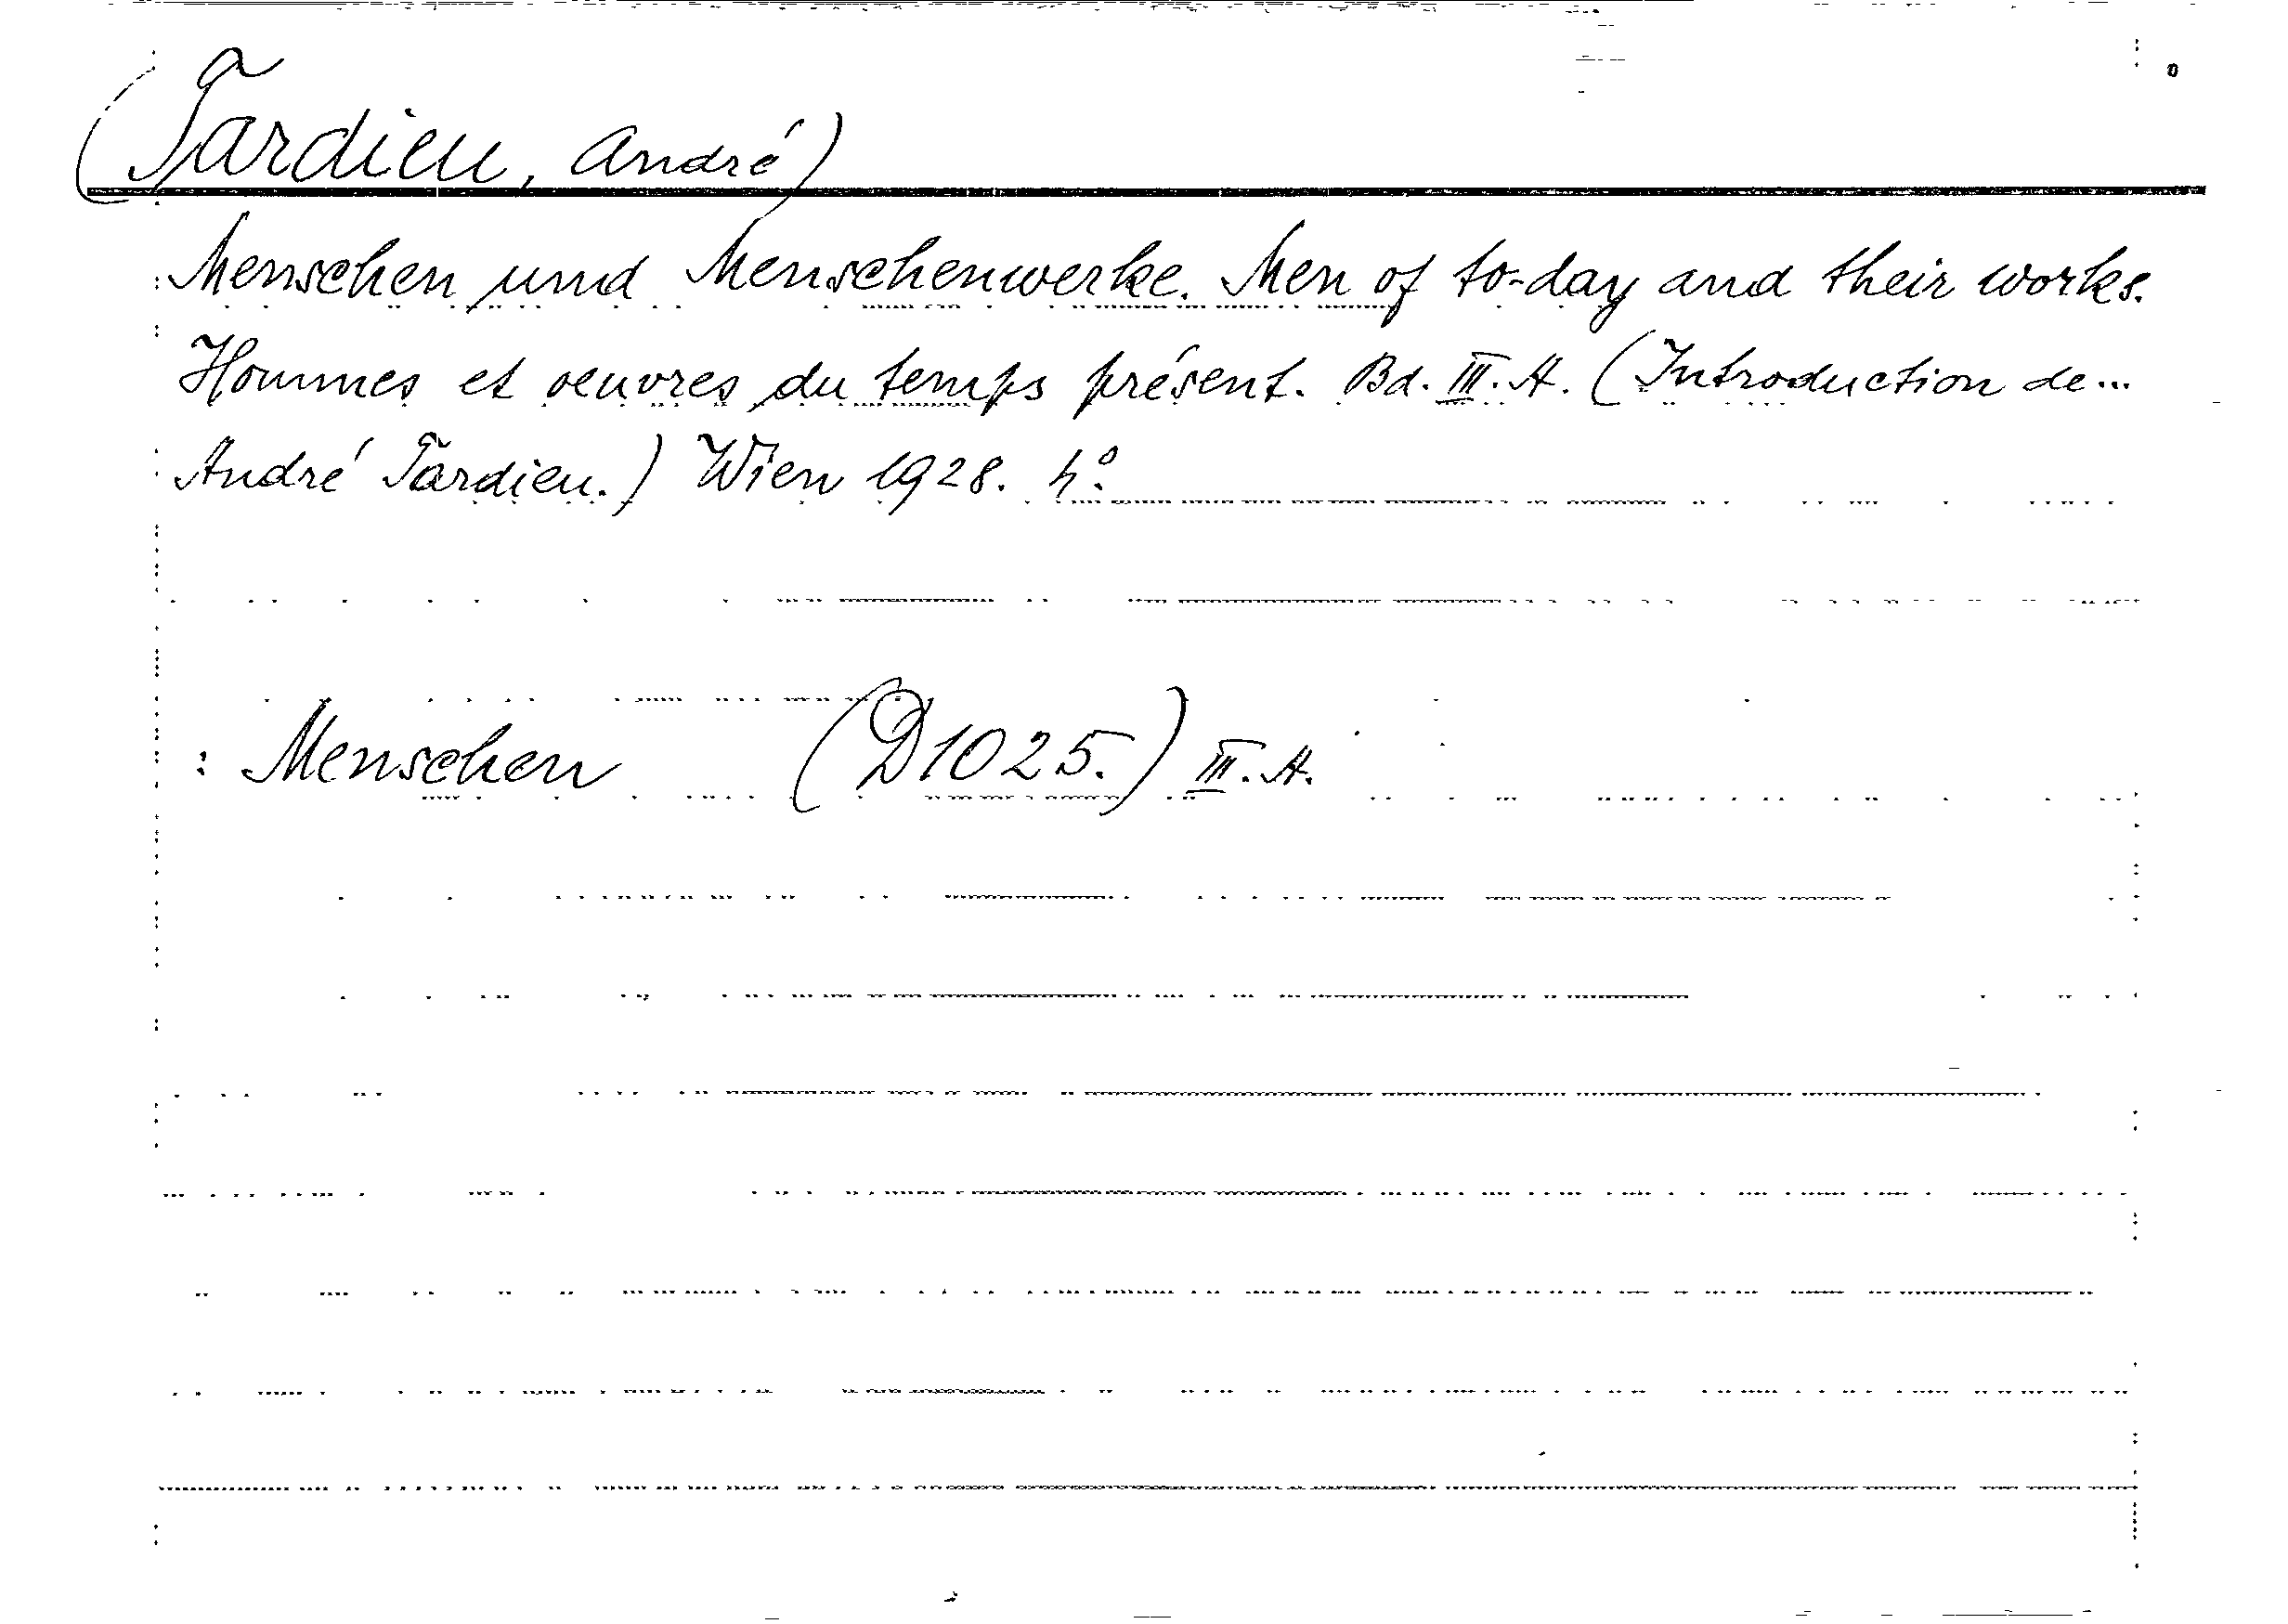 (Tardieu, André)
Menschen und Menschenwerke. Men of to-day and their works.
Hommes et oeuvres du temps présent. Bd. III. A. (Introduction de...
André Tardieu.) Wien 1928. 4°.
: Menschen (D1025.) III. A.